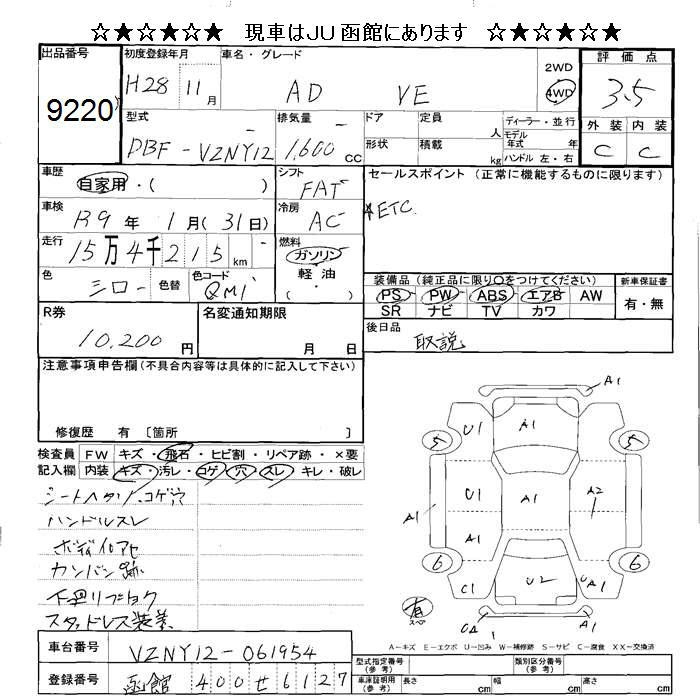 ☆★☆★☆☆ 現車はJU函館にあります ☆★☆★☆☆
出品番号
9220
初度登録年月
H28 11月
車名・グレード
AD VE
2WD
4WD
評価点
3.5
外装 内装
C C
型式
DBF-VZNY12
排気量
1,600CC
ドア
定員
人
形状
積載
kg
ディーラー・並行
モデル年式 年
ハンドル 左・右
車歴
自家用・( )
シフト
FAT
セールスポイント(正常に機能するものに限ります)
ETC
車検
R9年 1月(31日)
冷房
AC
走行
15万4千215km
燃料
ガソリン
軽油
・( )
色
シロー
色替
色コード
QM1
装備品(純正品に限り○をつけてください)
PS PW ABS エアB AW
SR ナビ TV カワ
新車保証書
有・無
R券
10,200円
名変通知期限
月 日
後日品
取説
注意事項申告欄(不具合内容等は具体的に記入して下さい)
修復歴 有 〔箇所 〕
検査員記入欄
FW キズ・飛石・ヒビ割・リペア跡・×要
内装 キズ・汚レ・コゲ・穴・スレ・キレ・破レ
シートヘタリ、コゲ穴
ハンドルスレ
ボディイロアセ
カンバン跡
下廻リサビ
スタッドレス装着
A1
U1
A1
5
5
U1
A1
A2
A1
A1
6
6
C1
U2
U
A1
有
スペア
UA
1
A1
A-キズ E-エクボ U-凹み W-補修跡 S-サビ C-腐食 XX-交換済
車台番号
VZNY12-061954
登録番号
函館 400せ6127
型式指定番号(参考)
類別区分番号(参考)
車庫証明用(参考)
長さ cm
幅 cm
高さ cm